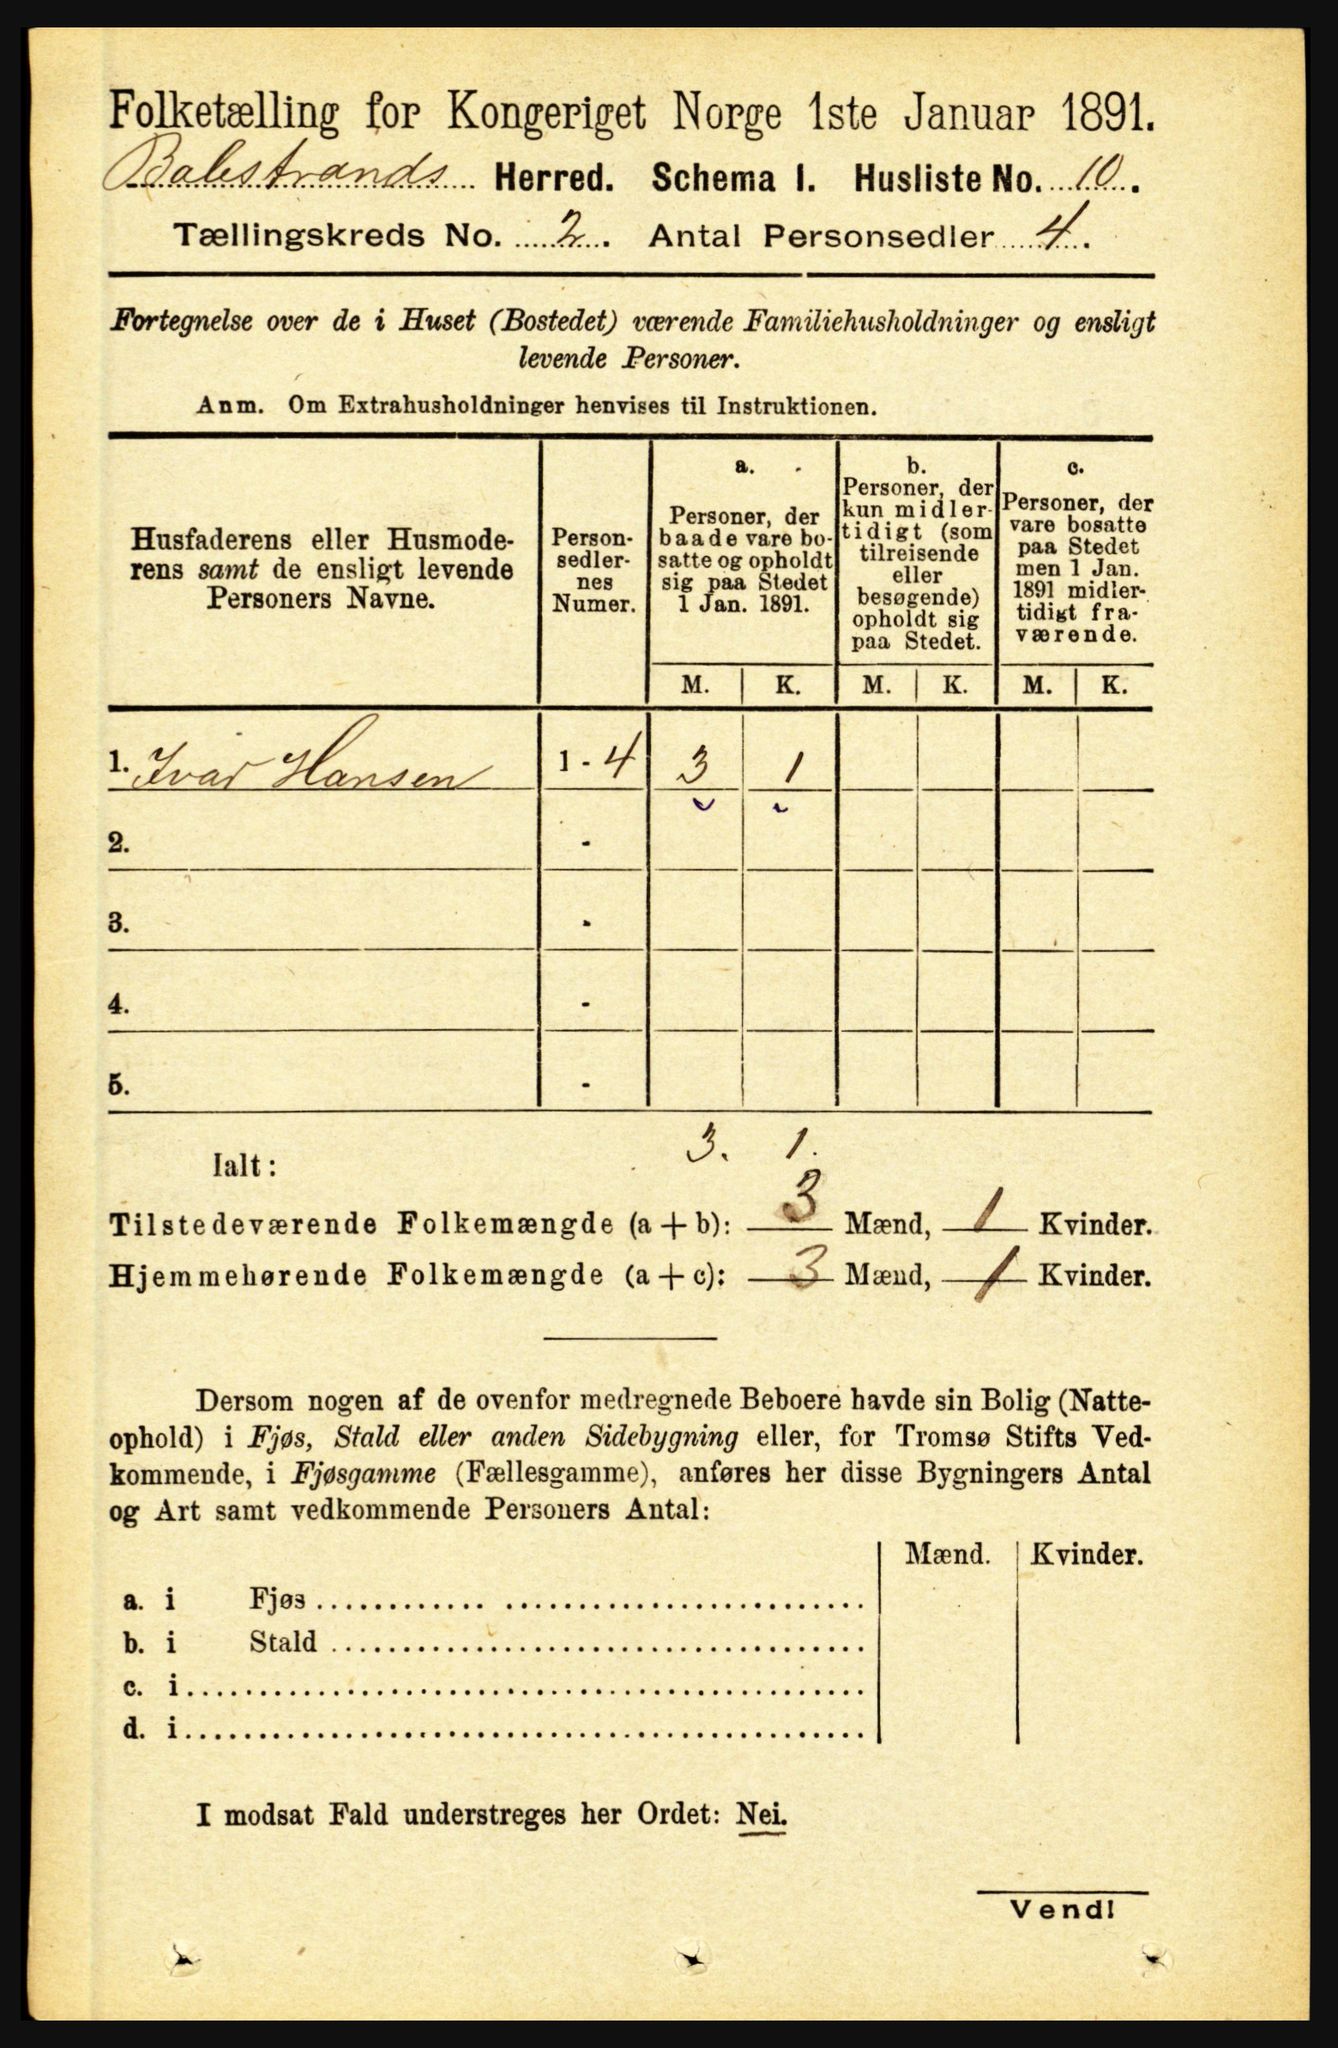 Folketælling for Kongeriget Norge 1ste Januar 1891.
Balestrands Herred. Schema I. Husliste No. 10.
Tællingskreds No. 2. Antal Personsedler 4.
Fortegnelse over de i Huset (Bostedet) værende Familiehusholdninger og ensligt
levende Personer.
Anm. Om Extrahusholdninger henvises til Instruktionen.
Husfaderens eller Husmode-
rens samt de ensligt levende
Personers Navne.
Person-
sedler-
nes
Numer.
a.
Personer, der
baade vare bo-
satte og opholdt
sig paa Stedet
1 Jan. 1891.
b.
Personer, der
kun midler-
tidigt (som
tilreisende
eller
besøgende)
opholdt sig
paa Stedet.
c.
Personer, der
vare bosatte
paa Stedet
men 1 Jan.
1891 midler-
tidigt fra-
værende.
M. K. M. K. M. K.
1. Ivar Hansen 1 - 4 3 1
2. -
3. -
4. -
5. -
Ialt: 3. 1.
Tilstedeværende Folkemængde (a + b): 3 Mænd, 1 Kvinder.
Hjemmehørende Folkemængde (a + c): 3 Mænd, 1 Kvinder.
Dersom nogen af de ovenfor medregnede Beboere havde sin Bolig (Natte-
ophold) i Fjøs, Stald eller anden Sidebygning eller, for Tromsø Stifts Ved-
kommende, i Fjøsgamme (Fællesgamme), anføres her disse Bygningers Antal
og Art samt vedkommende Personers Antal:
Mænd. Kvinder.
a. i Fjøs
b. i Stald
c. i
d. i
I modsat Fald understreges her Ordet: Nei.
Vend!